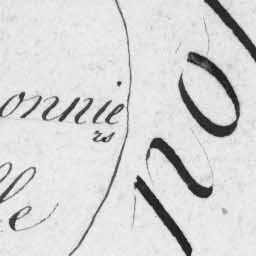 onnie
rs
le
no